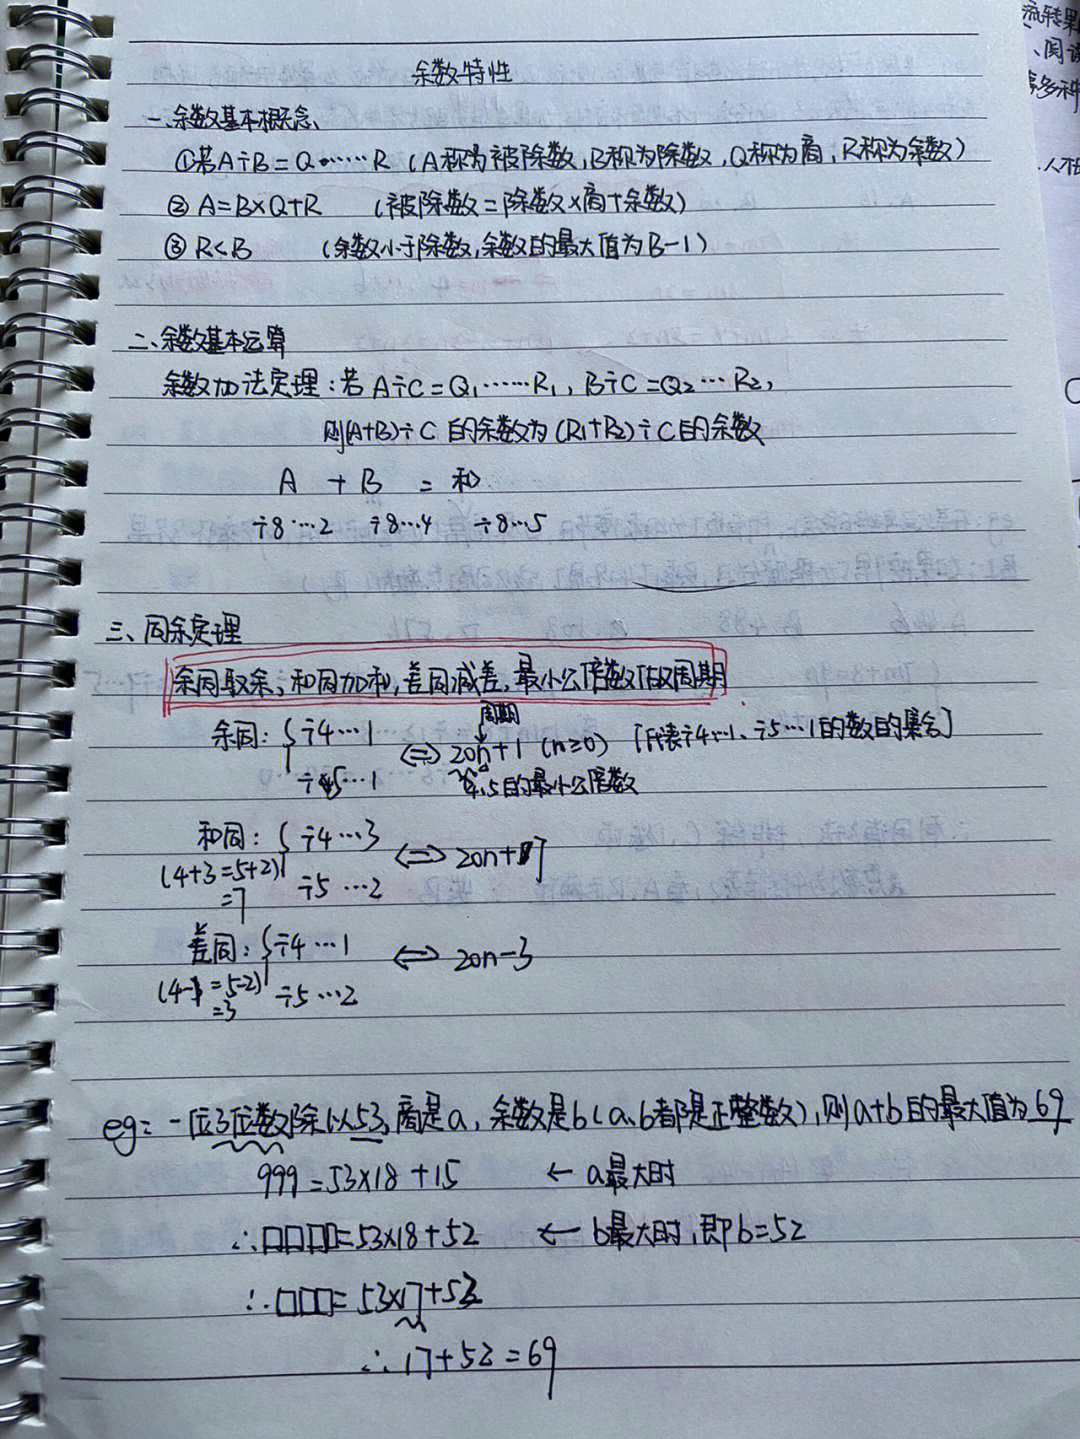 余数特性
一、余数基本概念、
①若A÷B=Q……R (A称为被除数,B称为除数,Q称为商,R称为余数)
② A=B×Q+R (被除数=除数×商+余数)
③ R<B (余数小于除数,余数的最大值为B-1)
二、余数基本运算
余数加法定理:若 A÷C=Q₁……R₁, B÷C=Q₂…R₂,
则(A+B)÷C 的余数为(R₁+R₂)÷C的余数
A + B = 和
÷8…2 ÷8…4 ÷8…5
三、同余定理
余同取余,和同加和,差同减差,最小公倍数做周期
周期
余同: { ÷4…1 ⇔ 20n+1 (n≥0) [代表÷4…1、÷5…1的数的集合]
÷5…1 4,5的最小公倍数
和同: { ÷4…3 ⇔ 20n+7
(4+3=5+2) ÷5…2
=7
差同: { ÷4…1 ⇔ 20n-3
(4-1=5-2) ÷5…2
=3
eg: 一位3位数除以53,商是a,余数是b(a、b都是正整数),则a+b的最大值为69
999=53×18+15 ← a最大时
∴□□□□=53×18+52 ← b最大时,即b=52
∴□□□=53×17+52
∴17+52=69
流转果
、阅读
多种